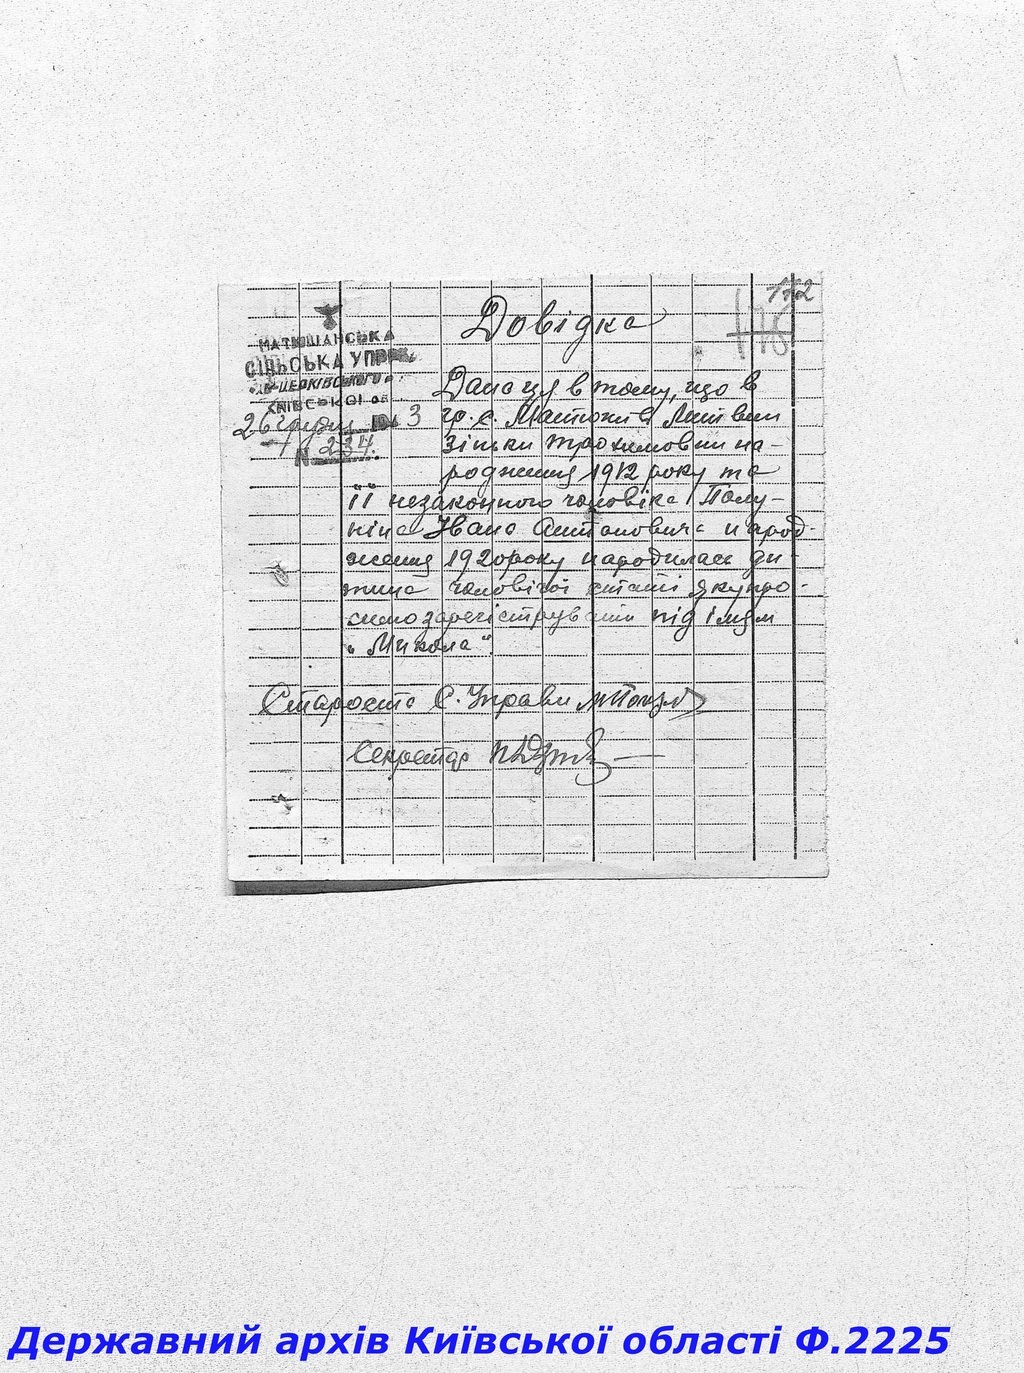 172
178
Довідка
МАТЮШАНСЬКА
СІЛЬСЬКА УПРАВА
ЦЕРКІВСЬКОГО
КИЇВСЬКОЇ об
26 грудня 3
N 234.
Дана ця в тому, що в
гр. с. Матюші Литвин
Зіньки Трохимовни на-
родження 1912 року та
її незаконного чоловіка Полу-
ніна Івана Антоновича народ-
ження 1920 року народилась ди-
тина чоловічої статі яку про-
симо зареєструвати під імям
"Микола".
Староста С. Управи
Секретар
Державний архів Київської області Ф.2225